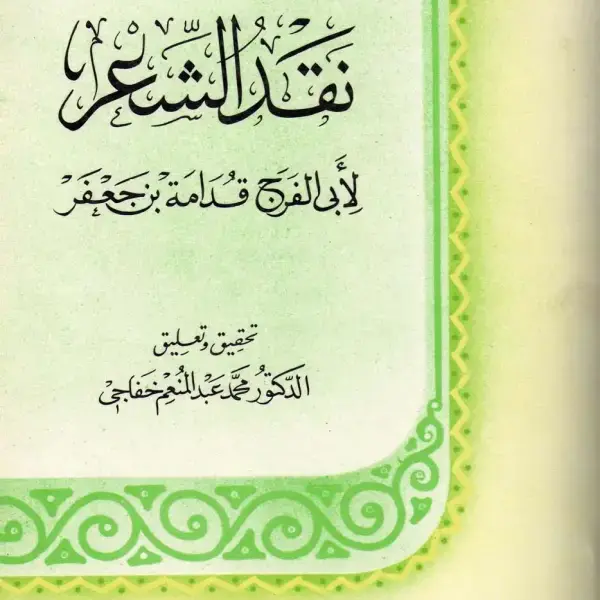 نَقْدُ الشِّعْرِ
لِأَبِى الفَرَجِ قُدَامَةَ بْن جَعْفَرْ
تحقيق وتعليق
الدكتور محمد عبد المنعم خفاجى